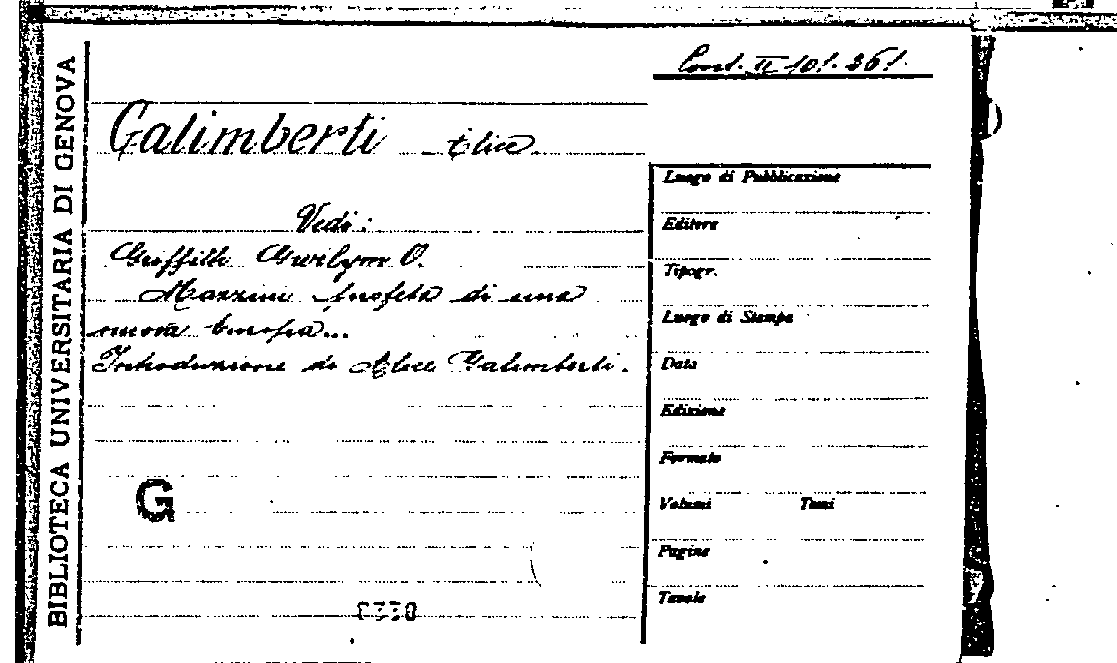 Cons. II 101. 361.
BIBLIOTECA UNIVERSITARIA DI GENOVA
Galimberti Alice
Vedi:
Griffith Gwilym O.
Mazzini profeta di una
nuova Europa...
Introduzione di Alice Galimberti.
G
Luogo di Pubblicazione
Editore
Tipogr.
Luogo di Stampa
Data
Edizione
Formato
Volumi Tomi
Pagine
Tavole